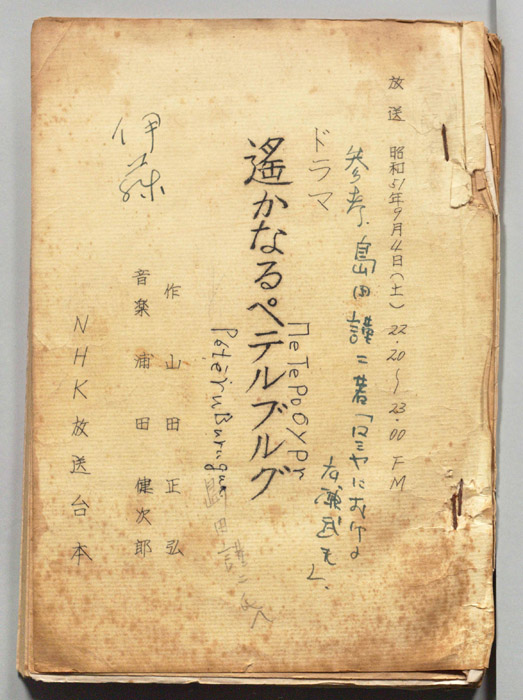 放送 昭和51年9月4日(土) 22.20〜23.00 FM
参考、島田謹二著「ロシヤにおける
広瀬武夫」、
ドラマ
遙かなるペテルブルグ
ПеТеРбУРг
島田謹二
伊藤
作 山田正弘
音楽 浦田健次郎
NHK放送台本